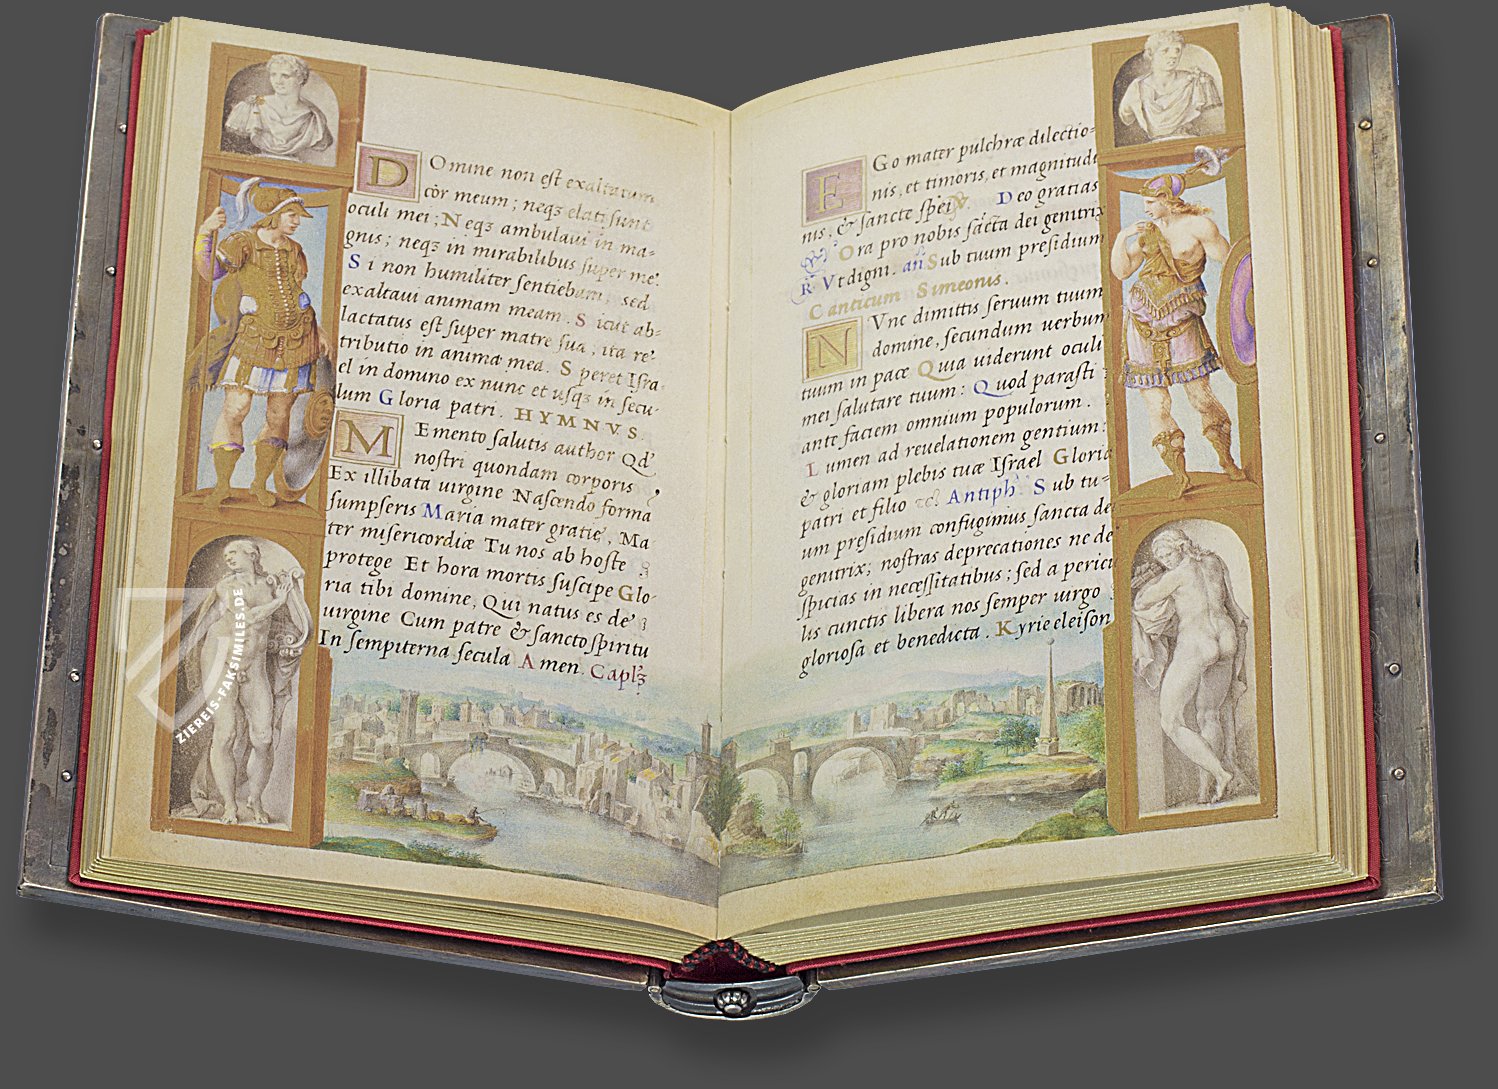 D Omine non est exaltatum
cor meum; neqз elati sunt
oculi mei; Neqз ambulaui in ma=
gnis; neqз in mirabilibus super me.
Si non humiliter sentiebam sed
exaltaui animam meam. Sicut ab=
lactatus est super matre sua, ita re=
tributio in anima mea. Speret Isra=
el in domino ex nunc et usqз in secu-
lum Gloria patri. HYMNVS.
M Emento salutis author Qd'
nostri quondam corporis,
Ex illibata uirgine Nascendo forma
sumpseris Maria mater gratię, Ma
ter misericordiæ Tu nos ab hoste
protege Et hora mortis suscipe Glo-
ria tibi domine, Qui natus es de
uirgine Cum patre & sancto spiritu
In sempiterna secula Amen. Caplз
E Go mater pulchræ dilectio=
nis, et timoris, et magnitudi
nis, & sancte spei V. Deo gratias
Ora pro nobis sācta dei genitrix
R Vt digni. añ Sub tuum presidium
Canticum Simeonis.
N Vnc dimittis seruum tuum
domine, secundum uerbum
tuum in pace Quia uiderunt oculi
mei salutare tuum: Quod parasti
ante faciem omnium populorum.
Lumen ad reuelationem gentium:
& gloriam plebis tuæ Israel Gloria
patri et filio Antiph' Sub tu=
um presidium confugimus sancta dei
genitrix; nostras deprecationes ne de
spicias in necessitatibus; sed a pericu
lis cunctis libera nos semper uirgo
gloriosa et benedicta. Kyrie eleison
ZIEREIS-FAKSIMILES.DE